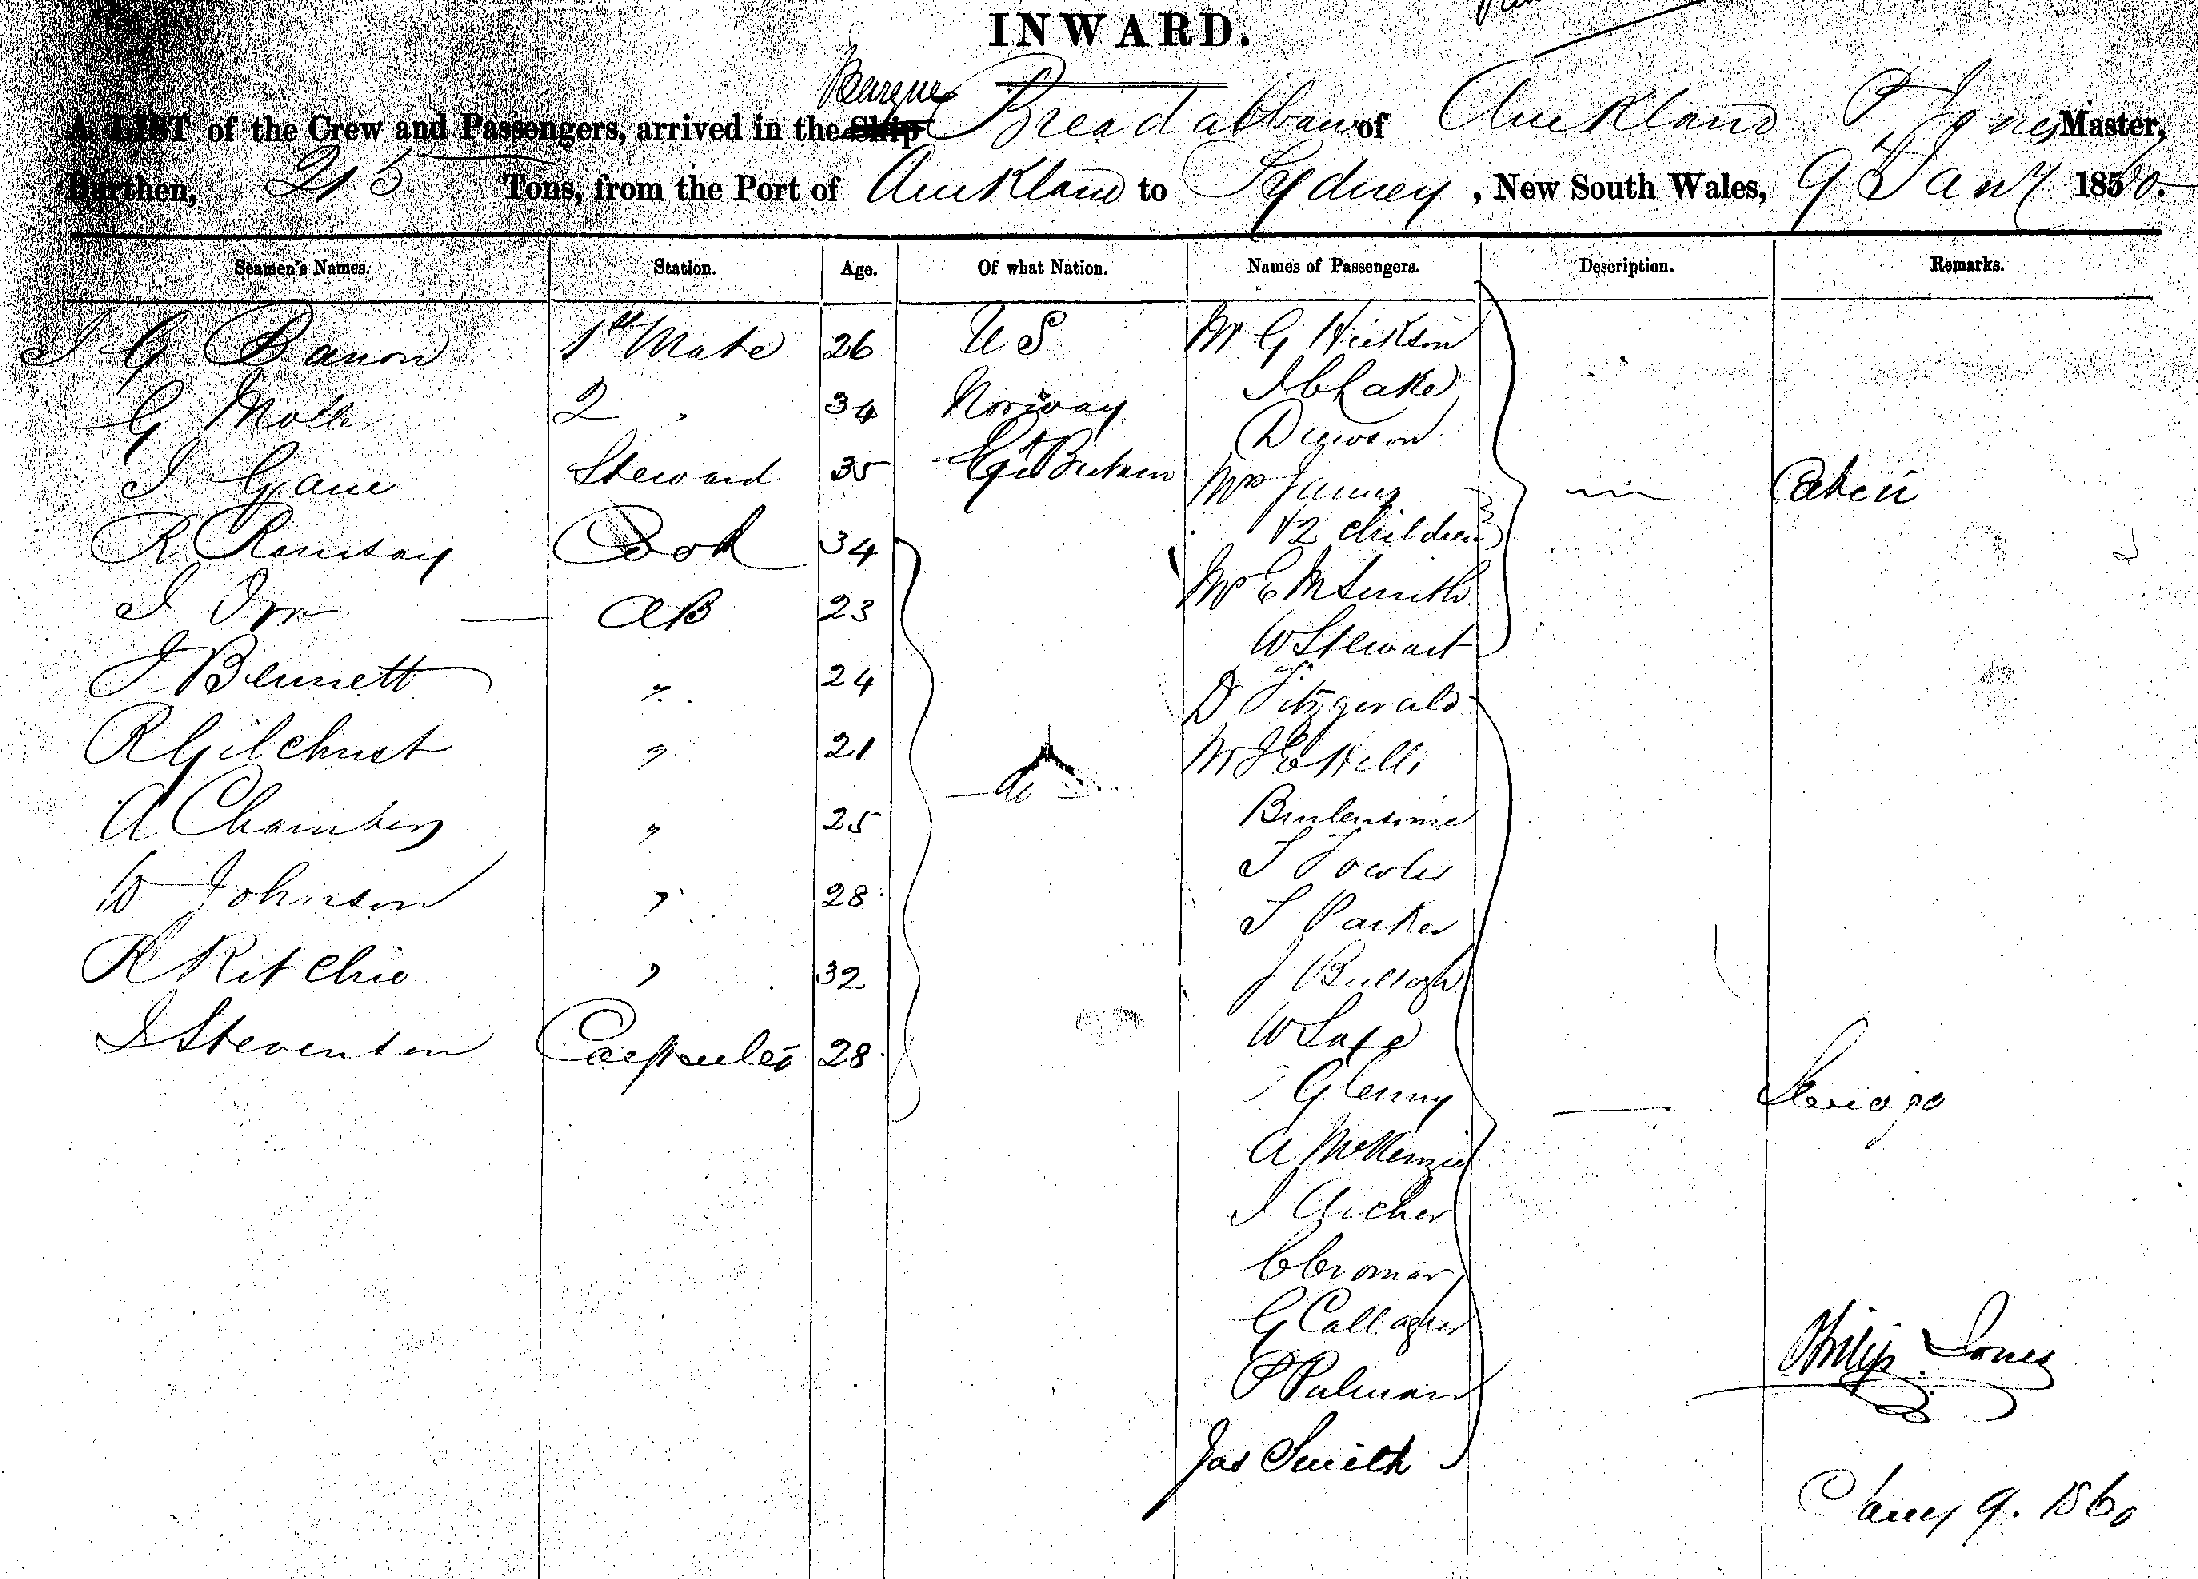 INWARD.
Barque
A LIST of the Crew and Passengers, arrived in the Ship Breadalbane of Auckland P Jones Master,
Burthen, 215 Tons, from the Port of Auckland to Sydney, New South Wales, 9 Jany 1860.
Seamen's Names. Station. Age. Of what Nation. Names of Passengers. Description. Remarks.
J G Banon 1st Mate 26 U S Mr G Hickson
G Molle 2 " 34 Norway J C Lake
Dewson
J Gane Steward 35 Gt Britain Mrs Jones Cabin
R Ramsay Cook 34 & 2 children
J Orr AB 23 Mr E M Smith
W Stewart
J Bennett " 24 D Fitzgerald
R Gilchrist " 21 do Mr J E Hill
A Chambers " 25
J Fowler
W Johnson " 28 J Parker
R Ritchie " 32 J Bullogh
J Stevenson 28 W Saxe
Glenny Steerage
A McKenzie
J Archer
C Cromar
G Callagher
P Pulman Philip Jones
Jas Smith
Jany 9. 1860